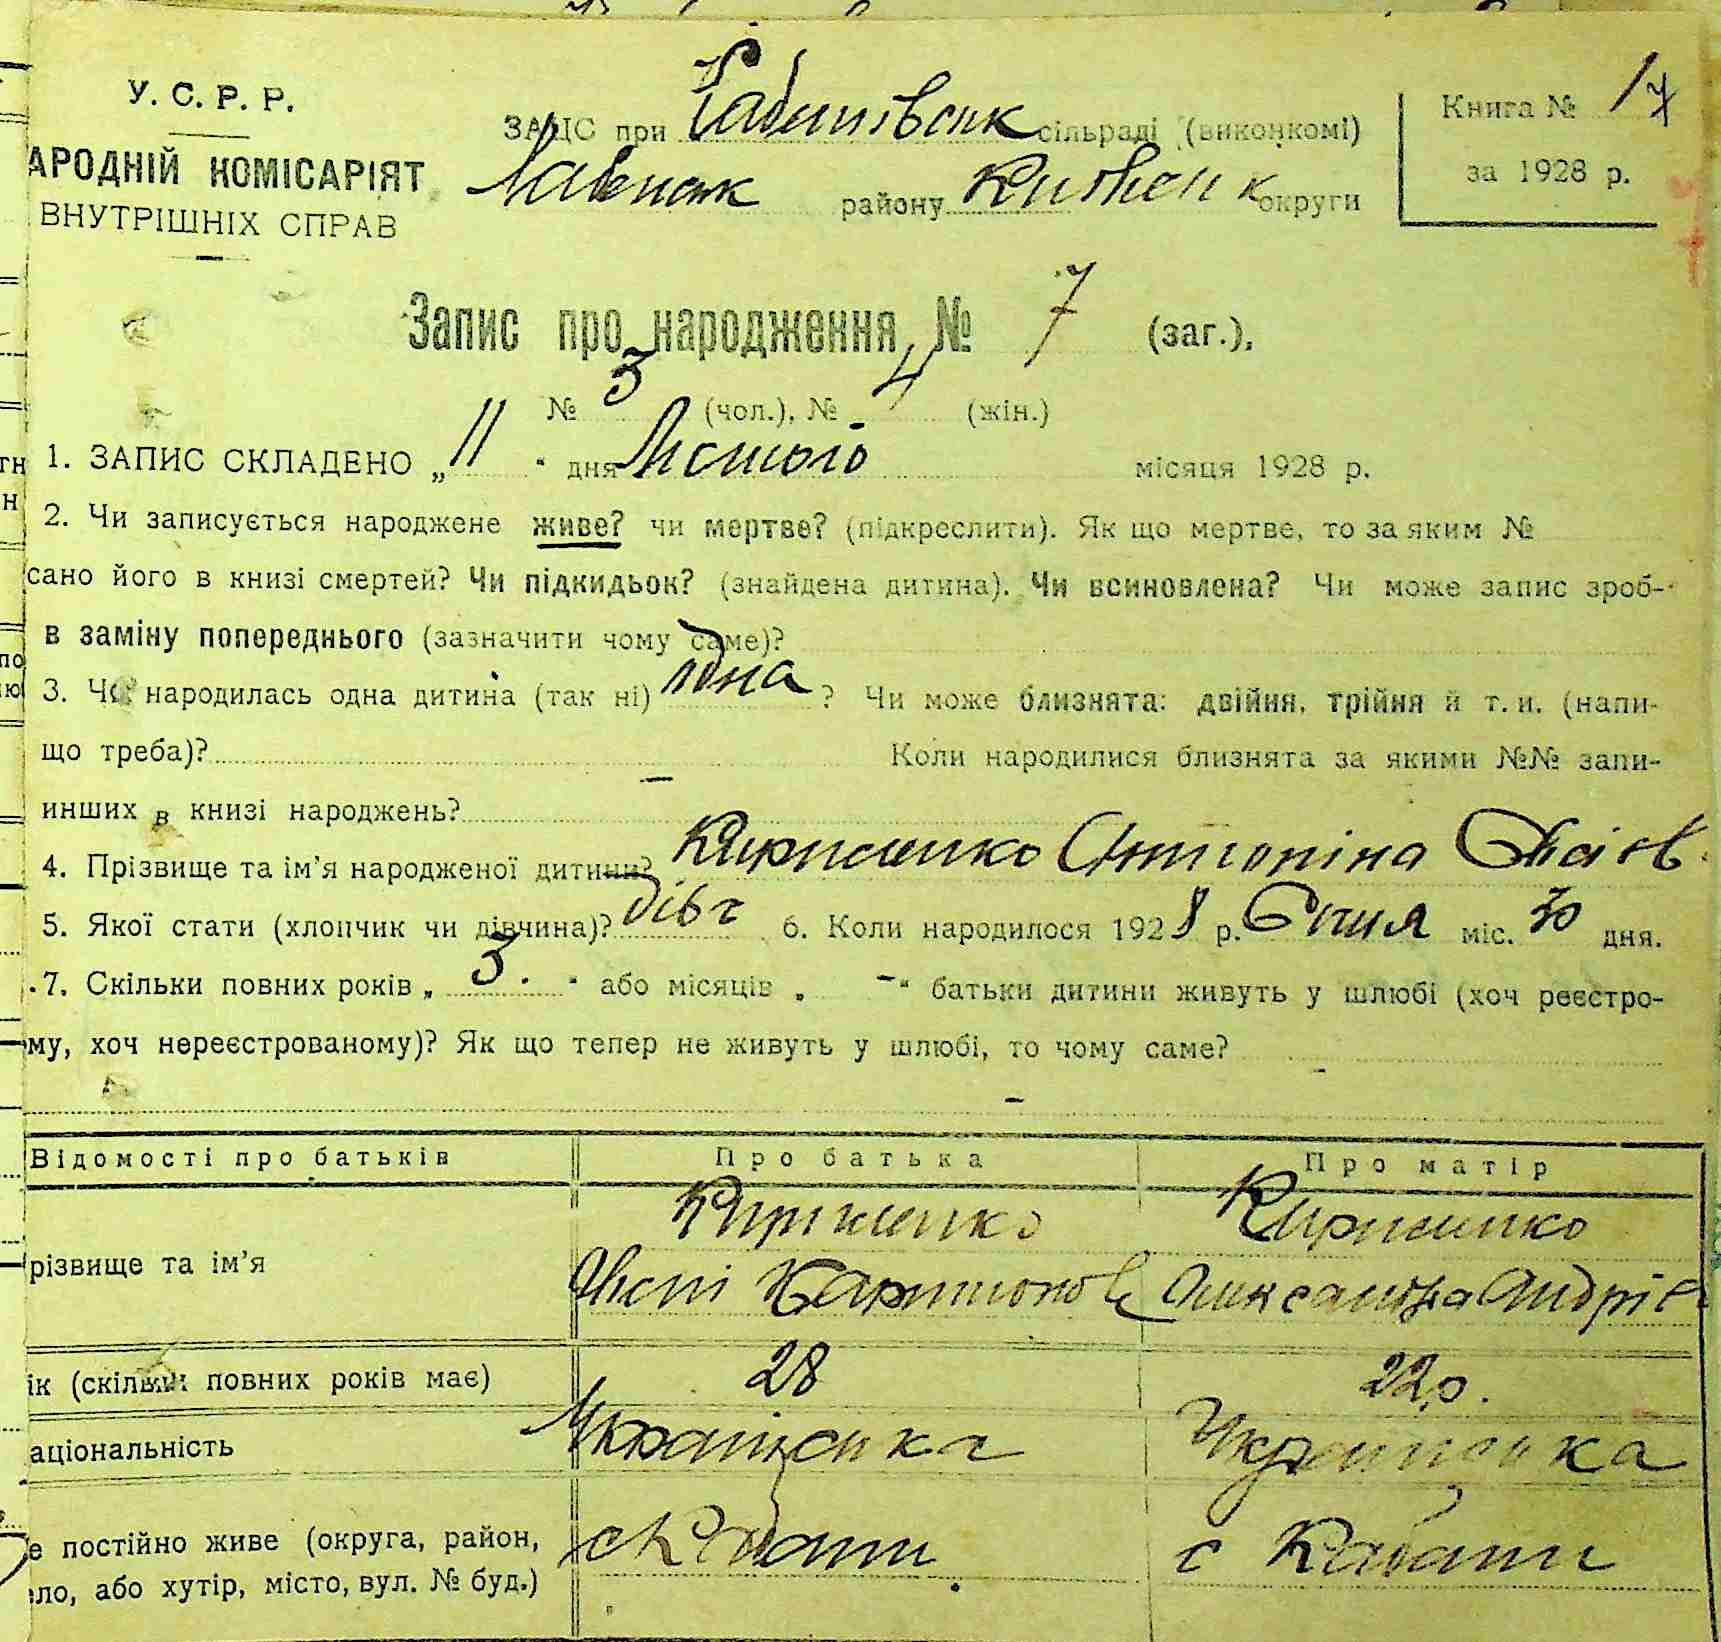 У. С. Р. Р.
АРОДНІЙ КОМІСАРІЯТ
ВНУТРІШНІХ СПРАВ
ЗАЦС при сільраді (виконкомі)
району Київськ округи
Книга № 17
за 1928 р.
Запис про народження № 7 (заг.),
№ 3 (чол.), № 4 (жін.)
1. ЗАПИС СКЛАДЕНО „ 11 “ дня Лютого місяця 1928 р.
2. Чи записується народжене живе? чи мертве? (підкреслити). Як що мертве, то за яким №
сано його в книзі смертей? Чи підкидьок? (знайдена дитина). Чи всиновлена? Чи може запис зроб-
в заміну попереднього (зазначити чому саме)?
3. Чи народилась одна дитина (так ні) одна ? Чи може близнята: двійня, трійня й т. и. (напи-
що треба)? Коли народилися близнята за якими №№ запи-
инших в книзі народжень? —
4. Прізвище та ім’я народженої дитини? Кириченко Антоніна
5. Якої стати (хлопчик чи дівчина)? дівч 6. Коли народилося 1928 р. Січня міс. 30 дня.
7. Скільки повних років „ 3. “ або місяців „ — “ батьки дитини живуть у шлюбі (хоч реєстро-
му, хоч нереєстрованому)? Як що тепер не живуть у шлюбі, то чому саме? -
-
Відомості про батьків Про батька Про матір
різвище та ім’я Кириченко Кириченко
Олександра Андрів
ік (скільки повних років має) 28 22 р.
аціональність Українська Українська
е постійно живе (округа, район, с Кабати с Кабати
ло, або хутір, місто, вул. № буд.)